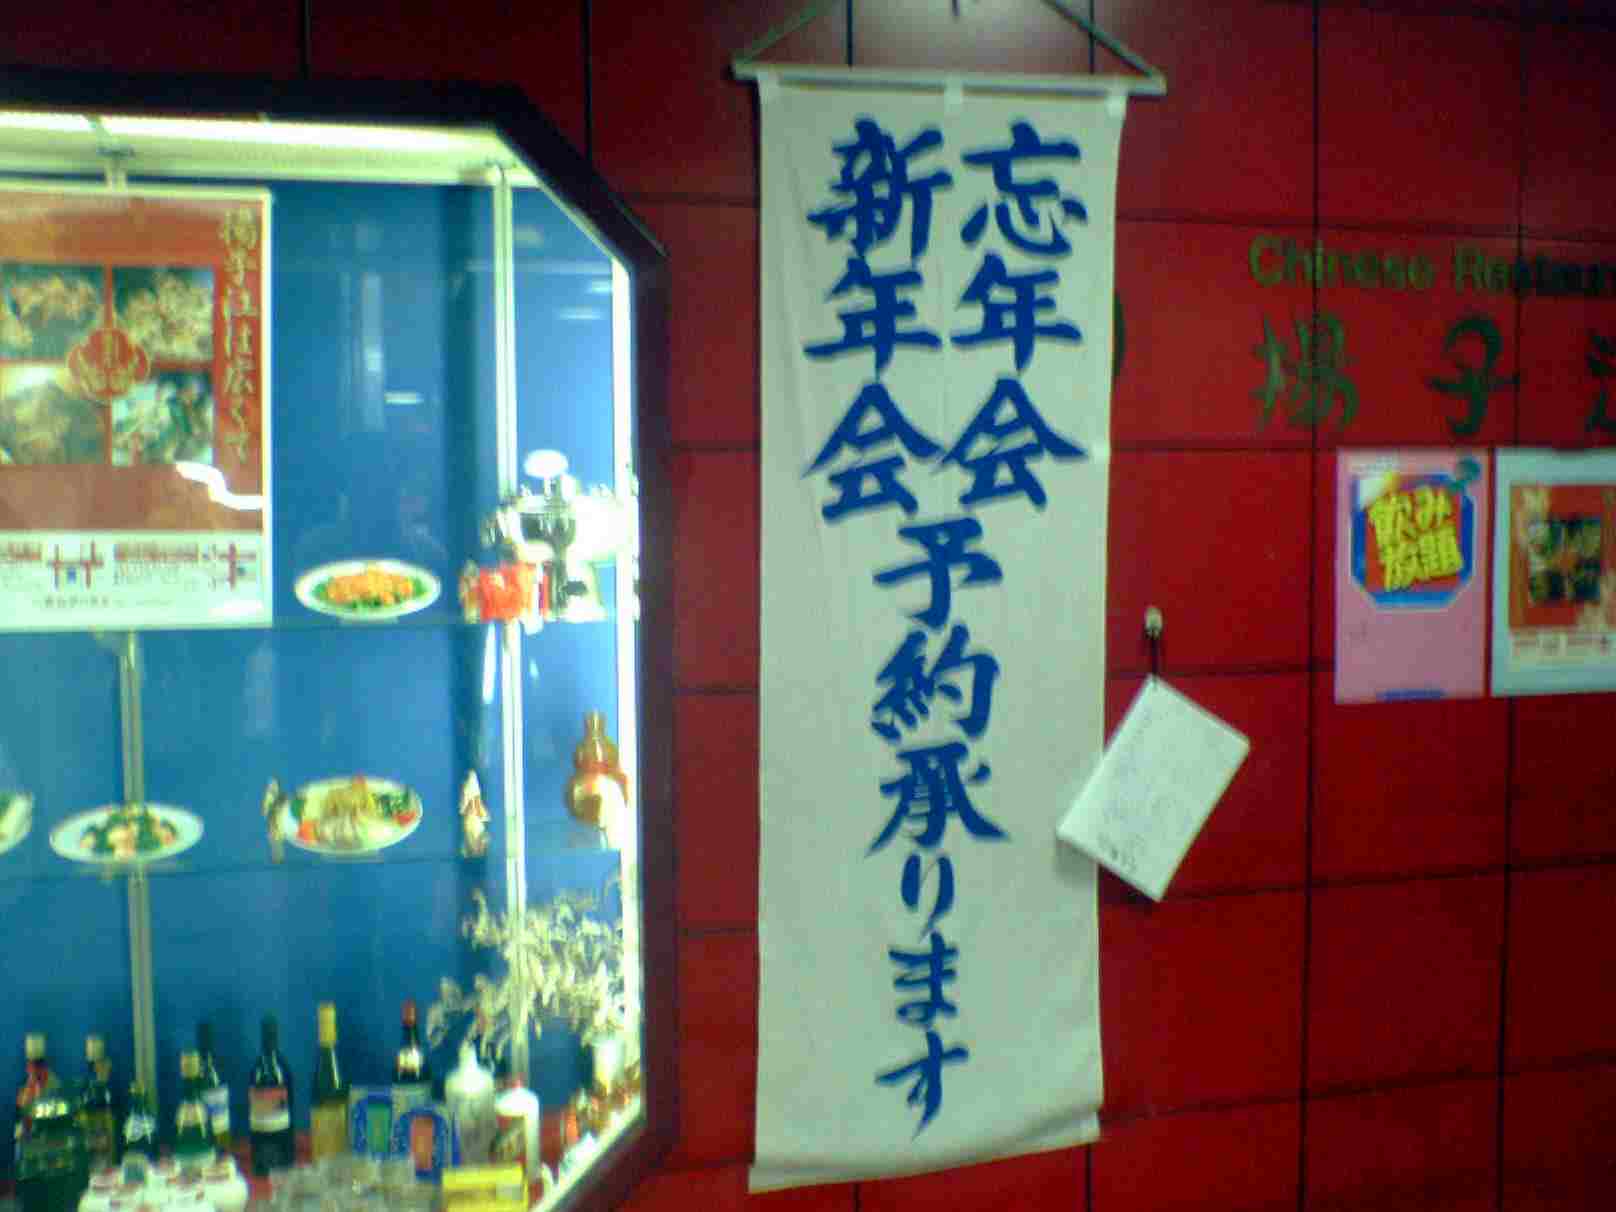 忘年会
新年会
予約承ります
Chinese Restaur
揚子
飲み
放題
揚子江は広くて